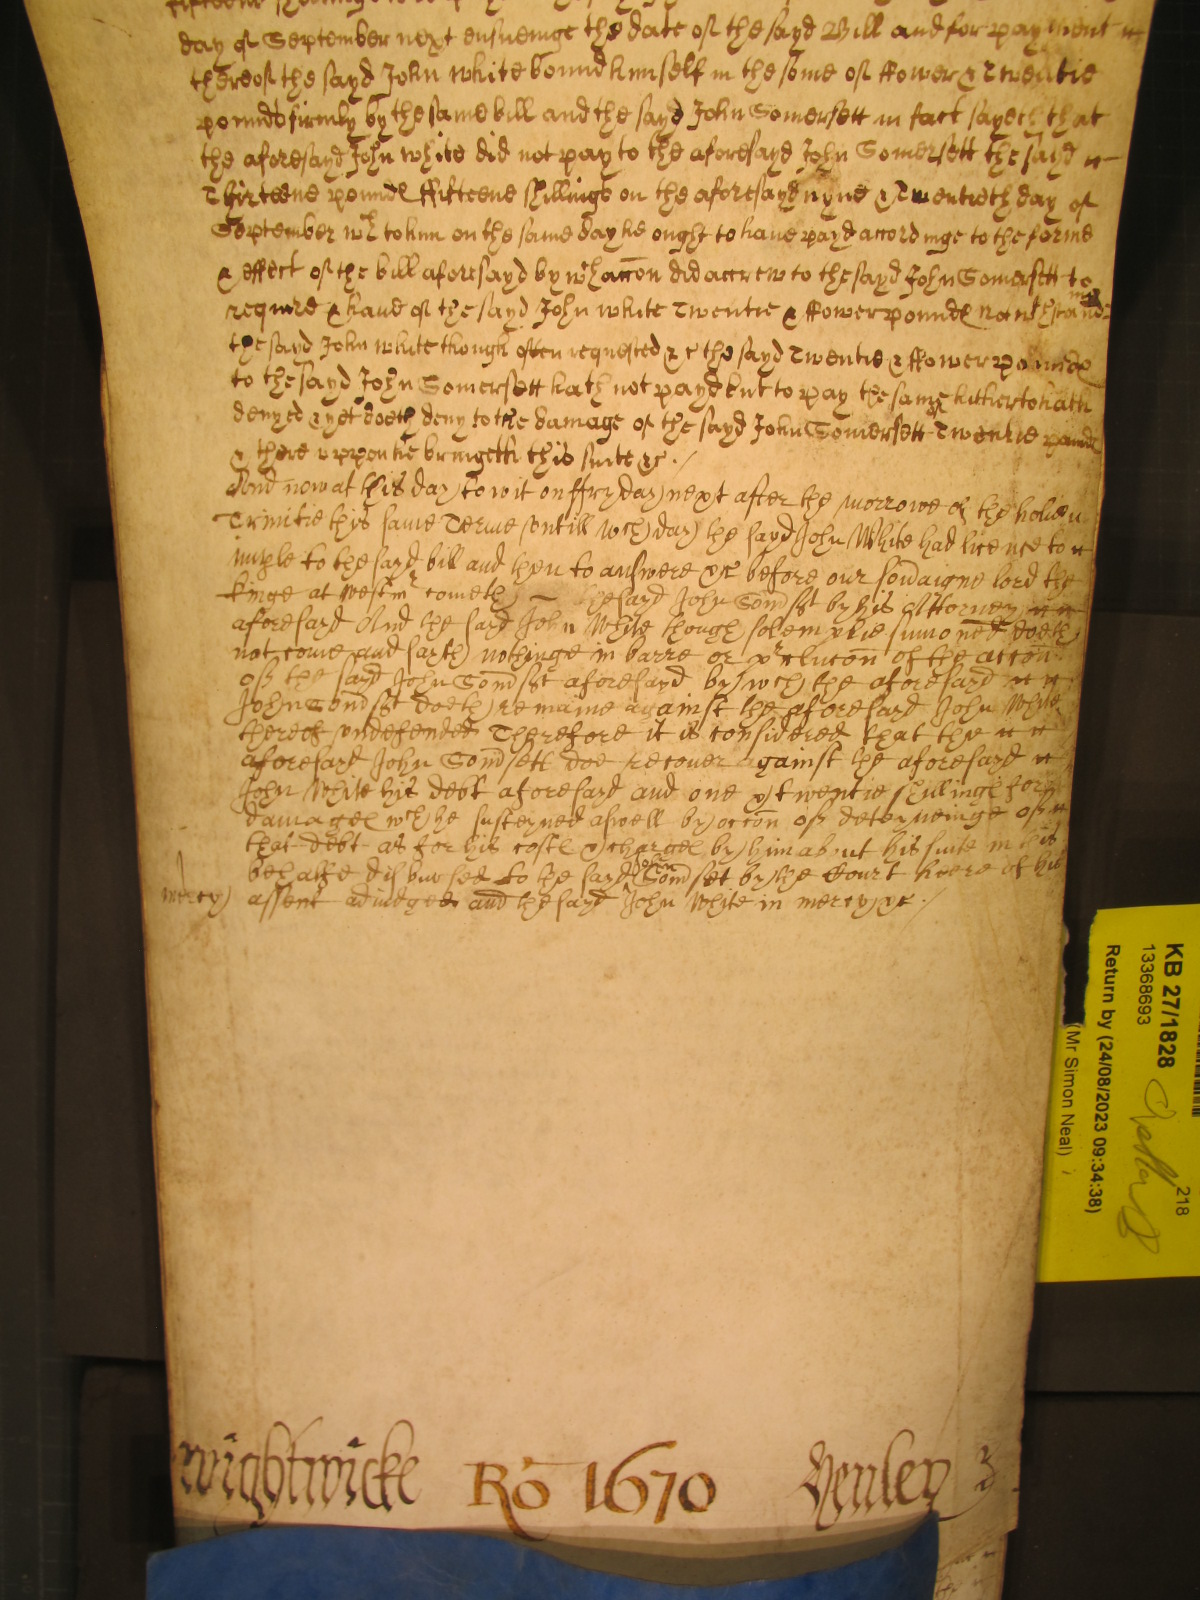 day of September next ensueinge the date of the sayd Bill and for payment
thereof the sayd John White bound himself in the some of ffower & Twentie
pounds firmly by the same bill and the sayd John Somersett in fact sayeth that
the aforesayd John White did not pay to the aforesayd John Somersett the sayd
Thirteene pounds ffifteene shillings on the aforesayd nyne & Twentieth day of
September wch to him on the same day he ought to have payd accordinge to the forme
& effect of the bill aforesayd by wch accon did accrew to the sayd John Somersett to
require & have of the sayd John White Twentie & ffower pounds
the sayd John White though often requested &c the sayd Twentie & ffower pounds
to the sayd John Somersett hath not payd but to pay the same hitherto hath
denyed & yet doeth deny to the damage of the sayd John Somersett of Twentie pounds
& thereuppon he bringeth this suite &c ./
And now at this day to wit on ffryday next after the morrowe of the holie
Trinitie this same Terme untill wch day the sayd John White had licence to
imple to the sayd bill and then to answere &c before our soveraigne lord the
kinge at Westmr cometh the sayd John Somset by his Attorney
aforesayd And the sayd John White though solemplie sumoned doeth
not come and sayth nothinge in barre or preclucon of the accon
of the sayd John Somset aforesayd by wch the aforesayd
John Somset doeth remaine against the aforesayd John White
thereof undefended Therefore it is considered that the
aforesayd John Somsett doe recover against the aforesayd
John White his debt aforesayd and one & twentie shillings for
damages wch he susteyned aswell by occon of deteyneinge of
that debt as for his costs & charges by him about his suite in this
behalfe disbursed to the sayd John Somset by the Court heere of his
mercy assent adiudged and the sayd John White in mercy &c ./
Wightwicke Ro 1670 Henley 3
KB 27/1828
13368693
218
Return by (24/08/2023 09:34:38)
(Mr Simon Neal)